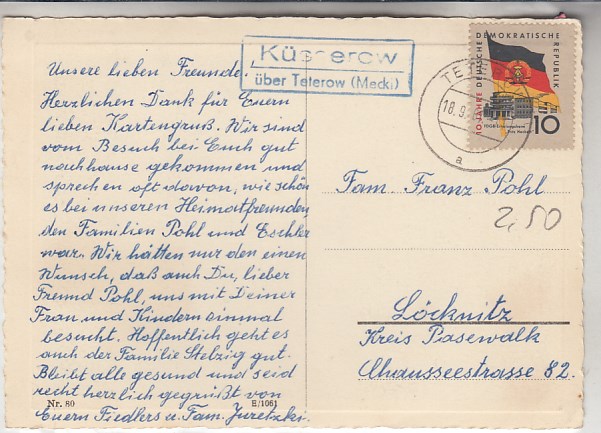 Unsere lieben Freunde.
Herzlichen Dank für Euern
lieben Kartengruß. Wir sind
vom Besuch bei Euch gut
nachhause gekommen und
sprechen oft davon, wie schön
es bei unseren Heimatfreunden
den Familien Pohl und Eschler
war. Wir hätten nur den einen
Wunsch, daß auch Du, lieber
Freund Pohl, uns mit Deiner
Frau und Kindern einmal
besucht. Hoffentlich geht es
auch der Familie Stelzig gut.
Bleibt alle gesund und seid
recht herzlich gegrüßt von
Euern Fiedlers u. Fam. Juretzki.
Nr. 80 E/1061
Küsserow
über Teterow (Meckl)
TETE
18.9.
a
10 JAHRE DEUTSCHE DEMOKRATISCHE REPUBLIK
10
Fam. Franz Pohl
2,50
Löcknitz
Kreis Pasewalk
Chausseestrasse 82.